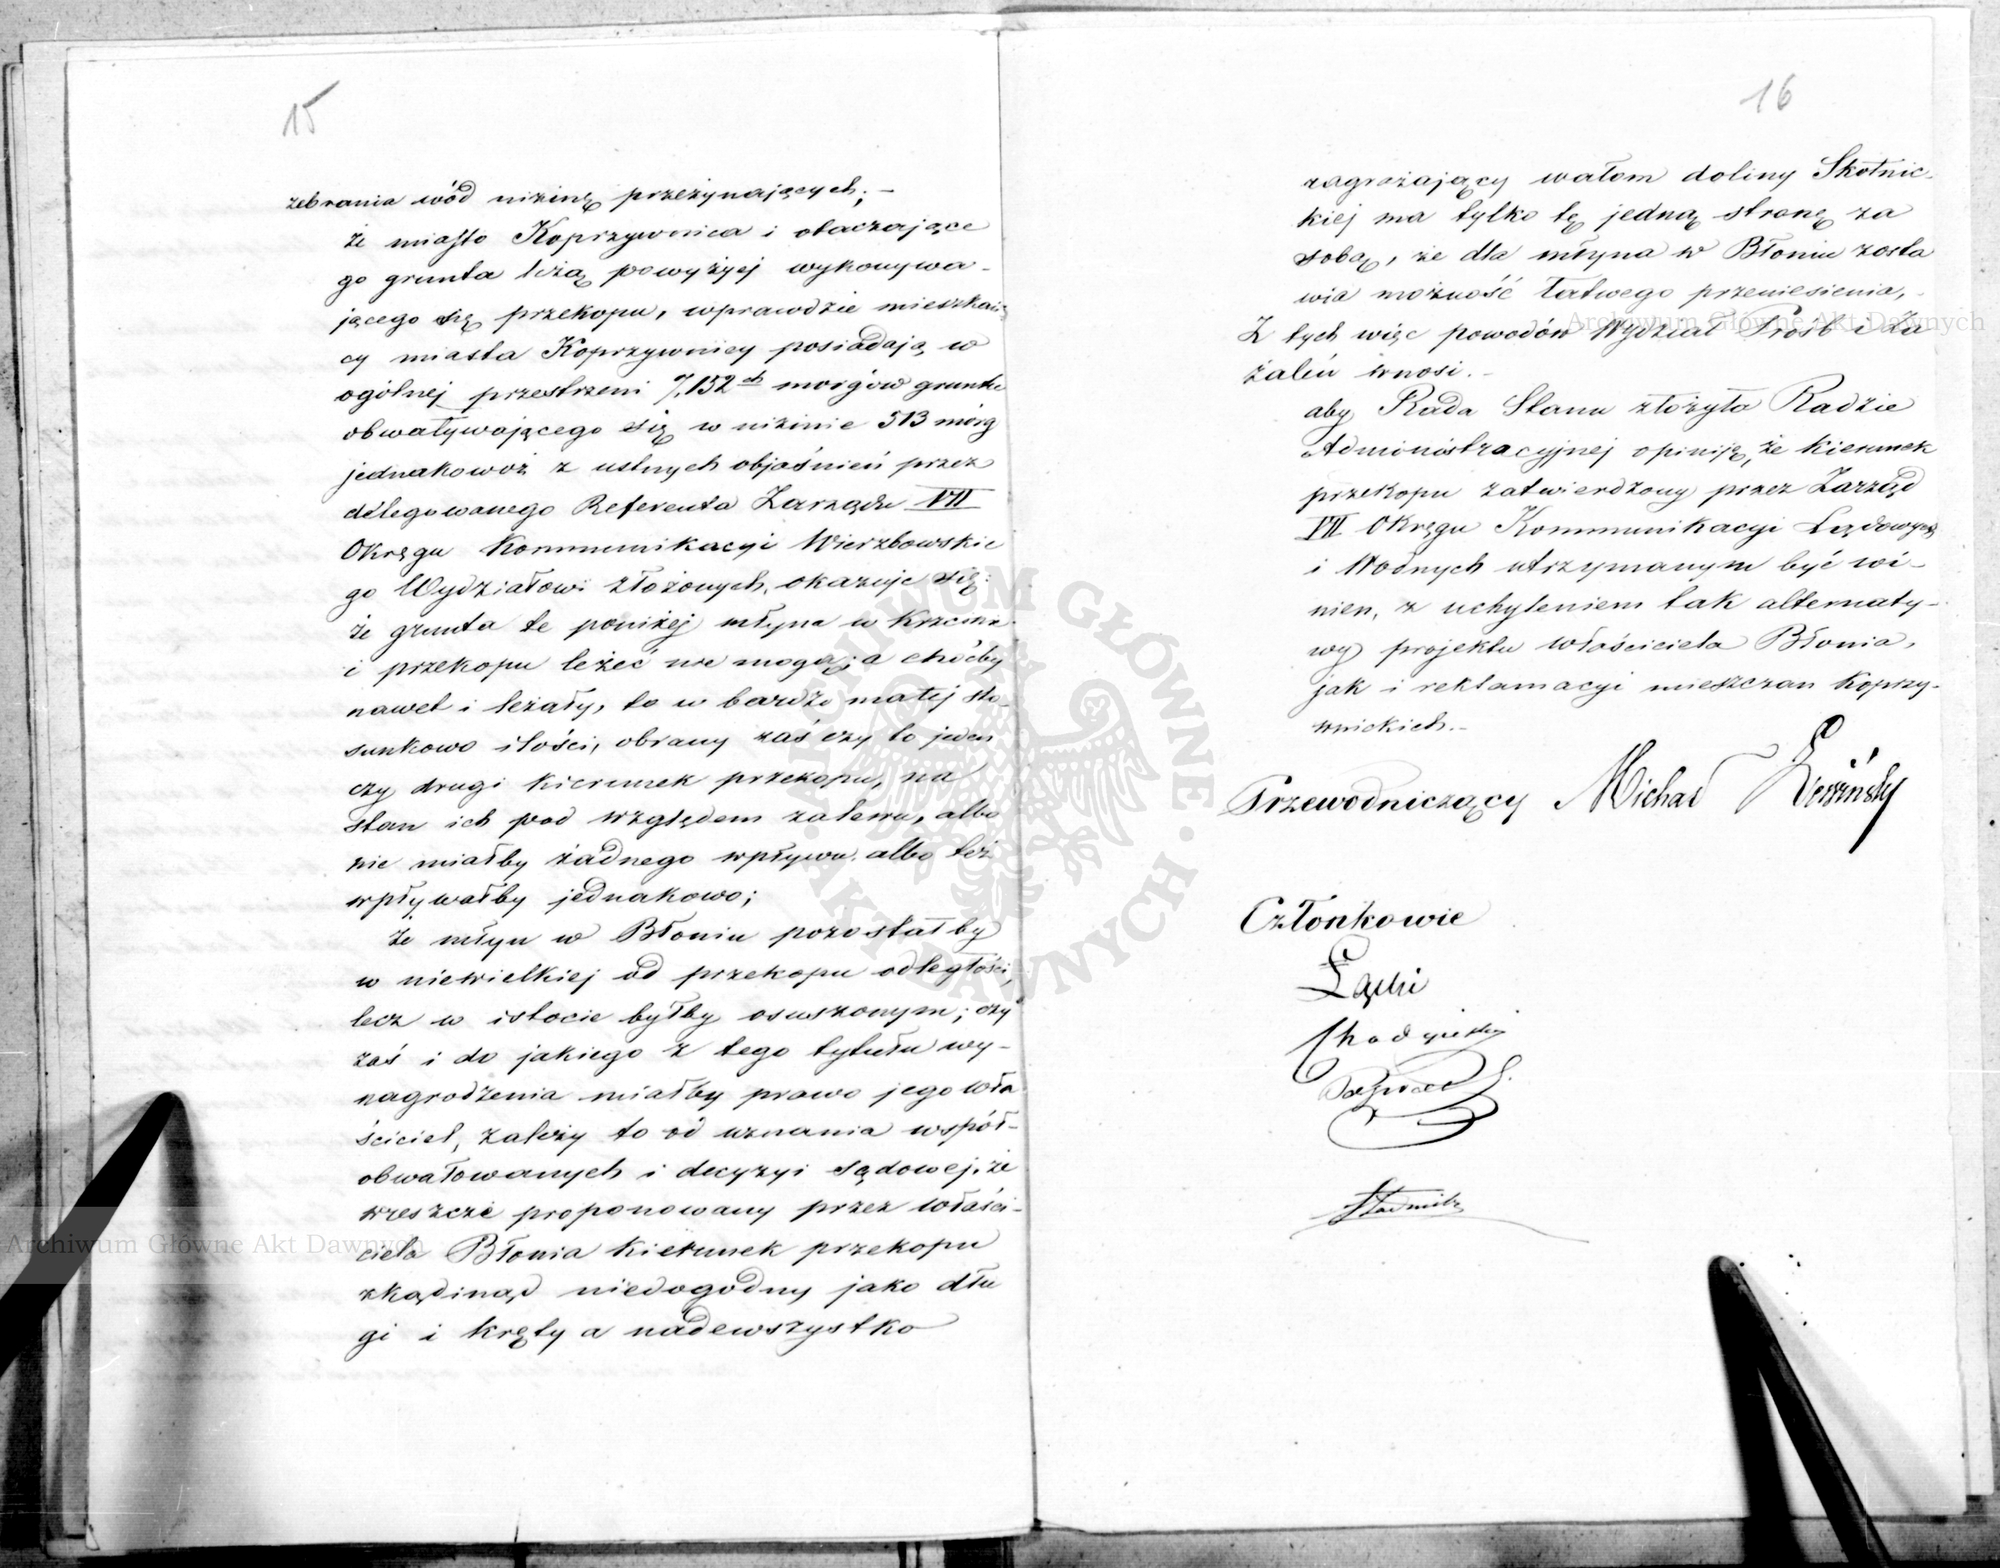 15
zebrania wód nizinę przeżynających; –
że miasto Koprzywnica i otaczające
go grunta leżą powyżej wykonywa-
jącego się przekopu, wprawdzie mieszkań-
cy miasta Koprzywnicy posiadają w
ogólnej przestrzeni 7,152ch morgów gruntu
obwaływającego się w nizinie 513 mórg
jednakowoż z ustnych objaśnień przez
delegowanego Referenta Zarządu VII
Okręgu Kommunikacyi Wierzbowskie
go Wydziałowi złożonych, okazuje się:
że grunta te poniżej młyna w Krzcinie
i przekopu leżeć nie mogą; a choćby
nawet i leżały, to w bardzo małej sto-
sunkowo ilości, obrany zaś czy to jeden
czy drugi kierunek przekopu, na
stan ich pod względem zalewu, albo
nie miałby żadnego wpływu, albo też
wpływałby jednakowo;
że młyn w Błoniu pozostałby
w niewielkiej od przekopu odległości,
lecz w istocie byłby osuszonym; czy
zaś i do jakiego z tego tytułu wy-
nagrodzenia miałby prawo jego wła
ściciel, zależy to od uznania współ-
obwałowanych i decyzyi sądowej; że
wreszcie proponowany przez właści-
ciela Błonia kierunek przekopu
zkądinąd niedogodny jako dłu
gi i kręty a nadewszystko
16
zagrażający wałom doliny Skotnic-
kiej ma tylko tę jedną stronę za
sobą, że dla młyna w Błoniu zosta
wia możność łatwego przeniesienia, –
Z tych więc powodów Wydział Prośb i Za
żaleń wnosi. –
aby Rada Stanu złożyła Radzie
Administracyjnej opiniję, że kierunek
przekopu zatwierdzony przez Zarząd
VII Okręgu Kommunikacyi Lądowych
i Wodnych utrzymanym być wi-
nien, z uchyleniem tak alternaty-
wy projektu właściciela Błonia,
jak i reklamacyi mieszczan Koprzy-
wnickich. –
Przewodniczący Michał
Członkowie
Łącki
Archiwum Główne Akt Dawnych
Archiwum Główne Akt Dawnych
ARCHIWUM GŁÓWNE AKT DAWNYCH